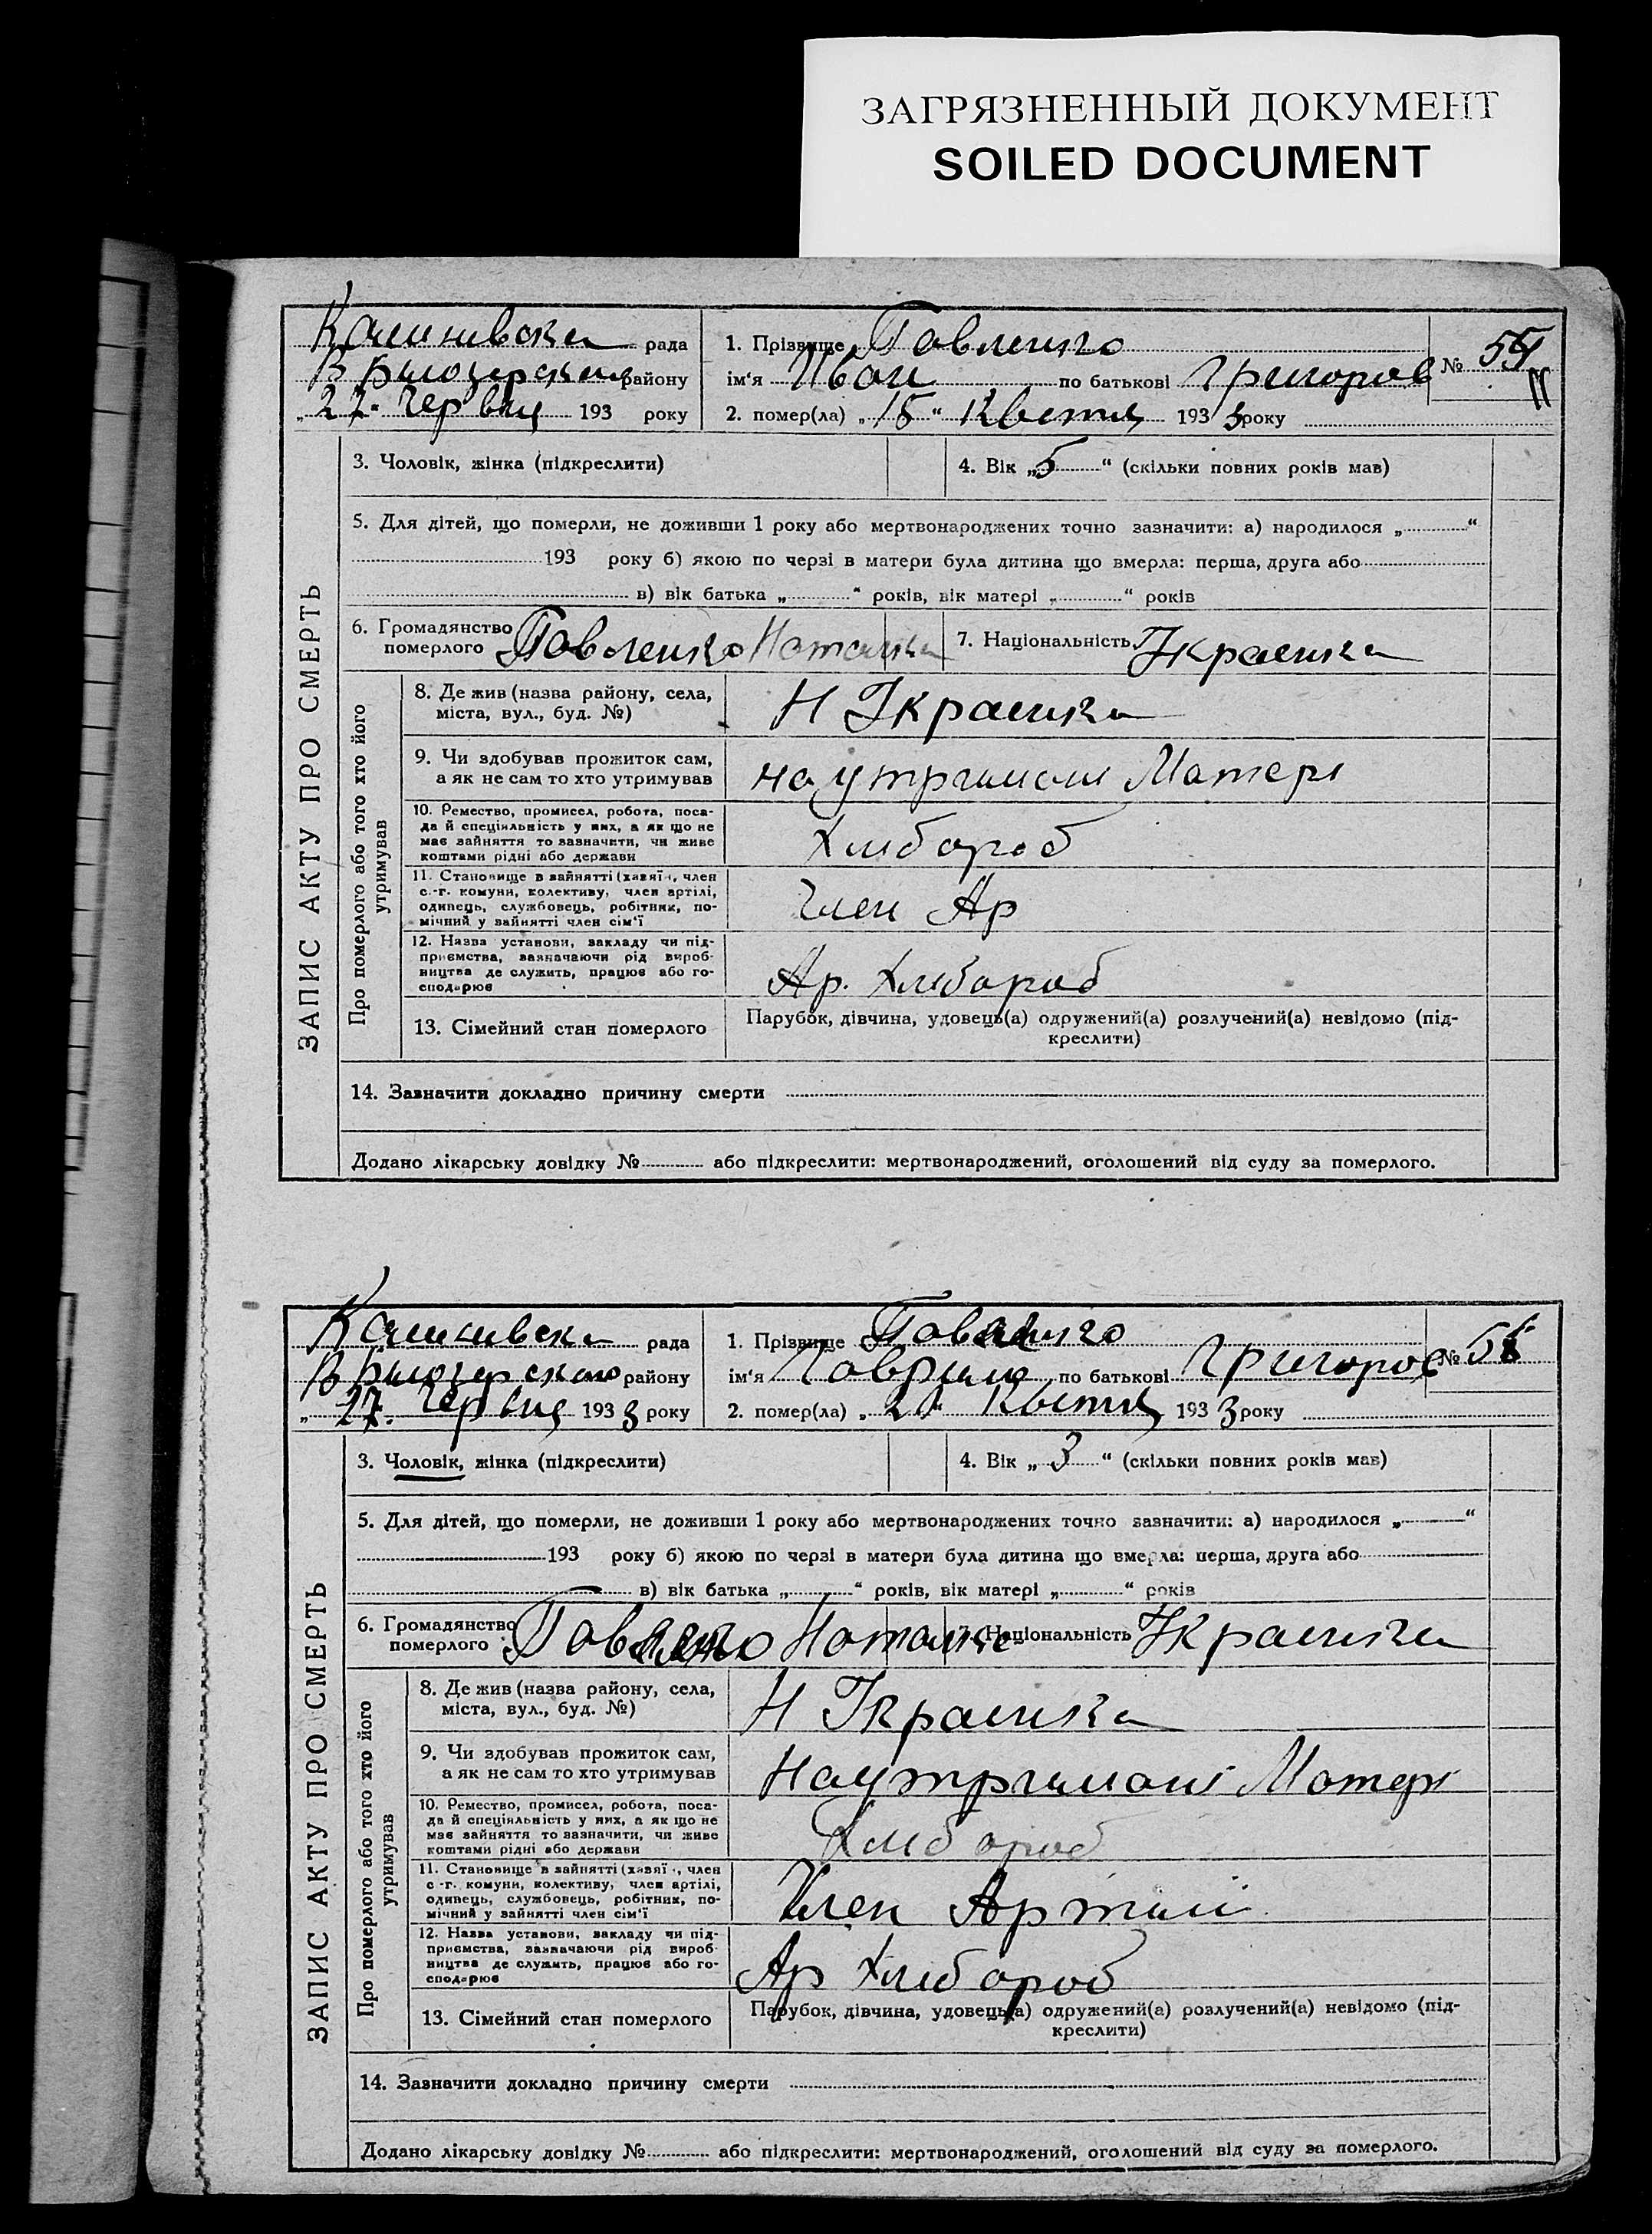 ЗАГРЯЗНЕННЫЙ ДОКУМЕНТ
SOILED DOCUMENT
ЗАПИС АКТУ ПРО СМЕРТЬ
рада
району
193 року
1. Прізвище Павленко
ім'я Иван по батькові Григоров
№
2. помер(ла) „15“ Квітня 1933 року
3. Чоловік, жінка (підкреслити)
4. Вік „5“ (скільки повних років мав)
5. Для дітей, що померли, не доживши 1 року або мертвонароджених точно зазначити: а) народилося „ “
193 року б) якою по черзі в матери була дитина що вмерла: перша, друга або
в) вік батька „ “ років, вік матері „ “ років
6. Громадянство померлого Павленко Наталка
7. Національність Українка
Про померлого або того хто його утримував
8. Де жив (назва району, села,
міста, вул., буд. №)
Н Українка
9. Чи здобував прожиток сам,
а як не сам то хто утримував
на утриманні Матері
10. Ремество, промисел, робота, поса-
да й спеціяльність у них, а як що не
має зайняття то зазначити, чи живе
коштами рідні або держави
Хлібороб
11. Становище в зайнятті (хазяїн, член
с.-г. комуни, колективу, член артілі,
одинець, службовець, робітник, по-
мічний у зайнятті член сім'ї
Член Ар
12. Назва установи, закладу чи під-
приємства, зазначаючи рід вироб-
ництва де служить, працює або го-
сподарює
Ар. Хлібороб
13. Сімейний стан померлого
Парубок, дівчина, удовець(а) одружений(а) розлучений(а) невідомо (під-
креслити)
14. Зазначити докладно причину смерти
Додано лікарську довідку № або підкреслити: мертвонароджений, оголошений від суду за померлого.
ЗАПИС АКТУ ПРО СМЕРТЬ
рада
району
„27. Червня 1933 року
1. Прізвище Павленко
ім'я Гаврило по батькові Григоров
№
2. помер(ла) „ Квітня 1933 року
3. Чоловік, жінка (підкреслити)
4. Вік „3“ (скільки повних років мав)
5. Для дітей, що померли, не доживши 1 року або мертвонароджених точно зазначити: а) народилося „ “
193 року б) якою по черзі в матери була дитина що вмерла: перша, друга або
в) вік батька „ “ років, вік матері „ “ років
6. Громадянство померлого Павленко Наталка
7. Національність Українка
Про померлого або того хто його утримував
8. Де жив (назва району, села,
міста, вул., буд. №)
Н Українка
9. Чи здобував прожиток сам,
а як не сам то хто утримував
На утриманні Матері
10. Ремество, промисел, робота, поса-
да й спеціяльність у них, а як що не
має зайняття то зазначити, чи живе
коштами рідні або держави
Хлібороб
11. Становище в зайнятті (хазяїн, член
с.-г. комуни, колективу, член артілі,
одинець, службовець, робітник, по-
мічний у зайнятті член сім'ї
Член Артилі
12. Назва установи, закладу чи під-
приємства, зазначаючи рід вироб-
ництва де служить, працює або го-
сподарює
Ар Хлібороб
13. Сімейний стан померлого
Парубок, дівчина, удовець(а) одружений(а) розлучений(а) невідомо (під-
креслити)
14. Зазначити докладно причину смерти
Додано лікарську довідку № або підкреслити: мертвонароджений, оголошений від суду за померлого.